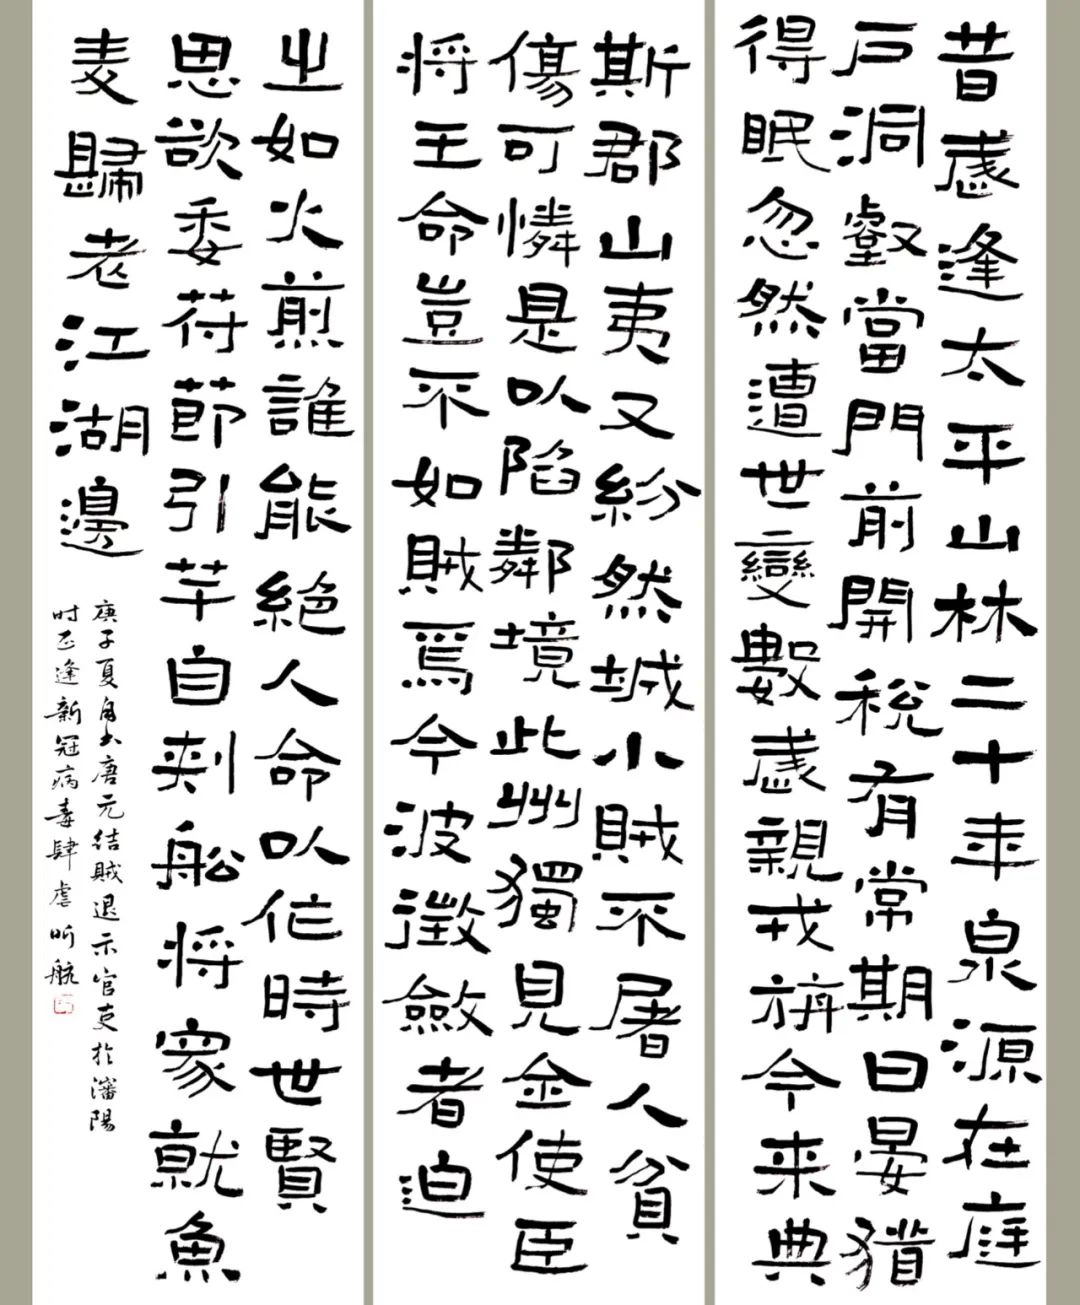 昔歲逢太平山林二十年泉源在庭
戶洞壑當門前開稅有常期日晏猶
得眠忽然遭世變數歲親戎旃今来典
斯郡山夷又紛然城小賊不屠人貧
傷可憐是以陷鄰境此州獨見金使臣
将王命豈不如賊焉今波徵斂者迫
之如火煎誰能絕人命以作時世賢
思欲委符節引竿自刺船将家就魚
麦歸老江湖邊
庚子夏唐元结賊退示官吏於瀋陽
时正逢新冠病毒肆虐昕航